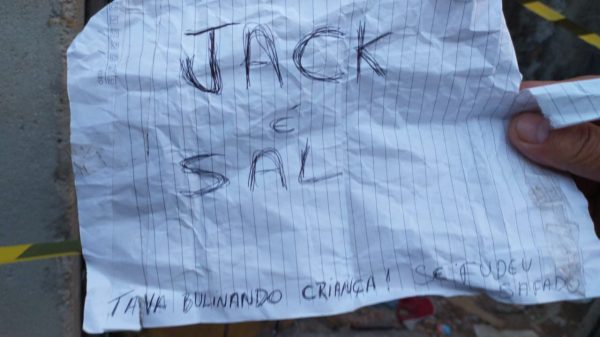 JACK
É
SAL
TAVA BULINANDO CRIANÇA! SE FUDEU
SAFADO